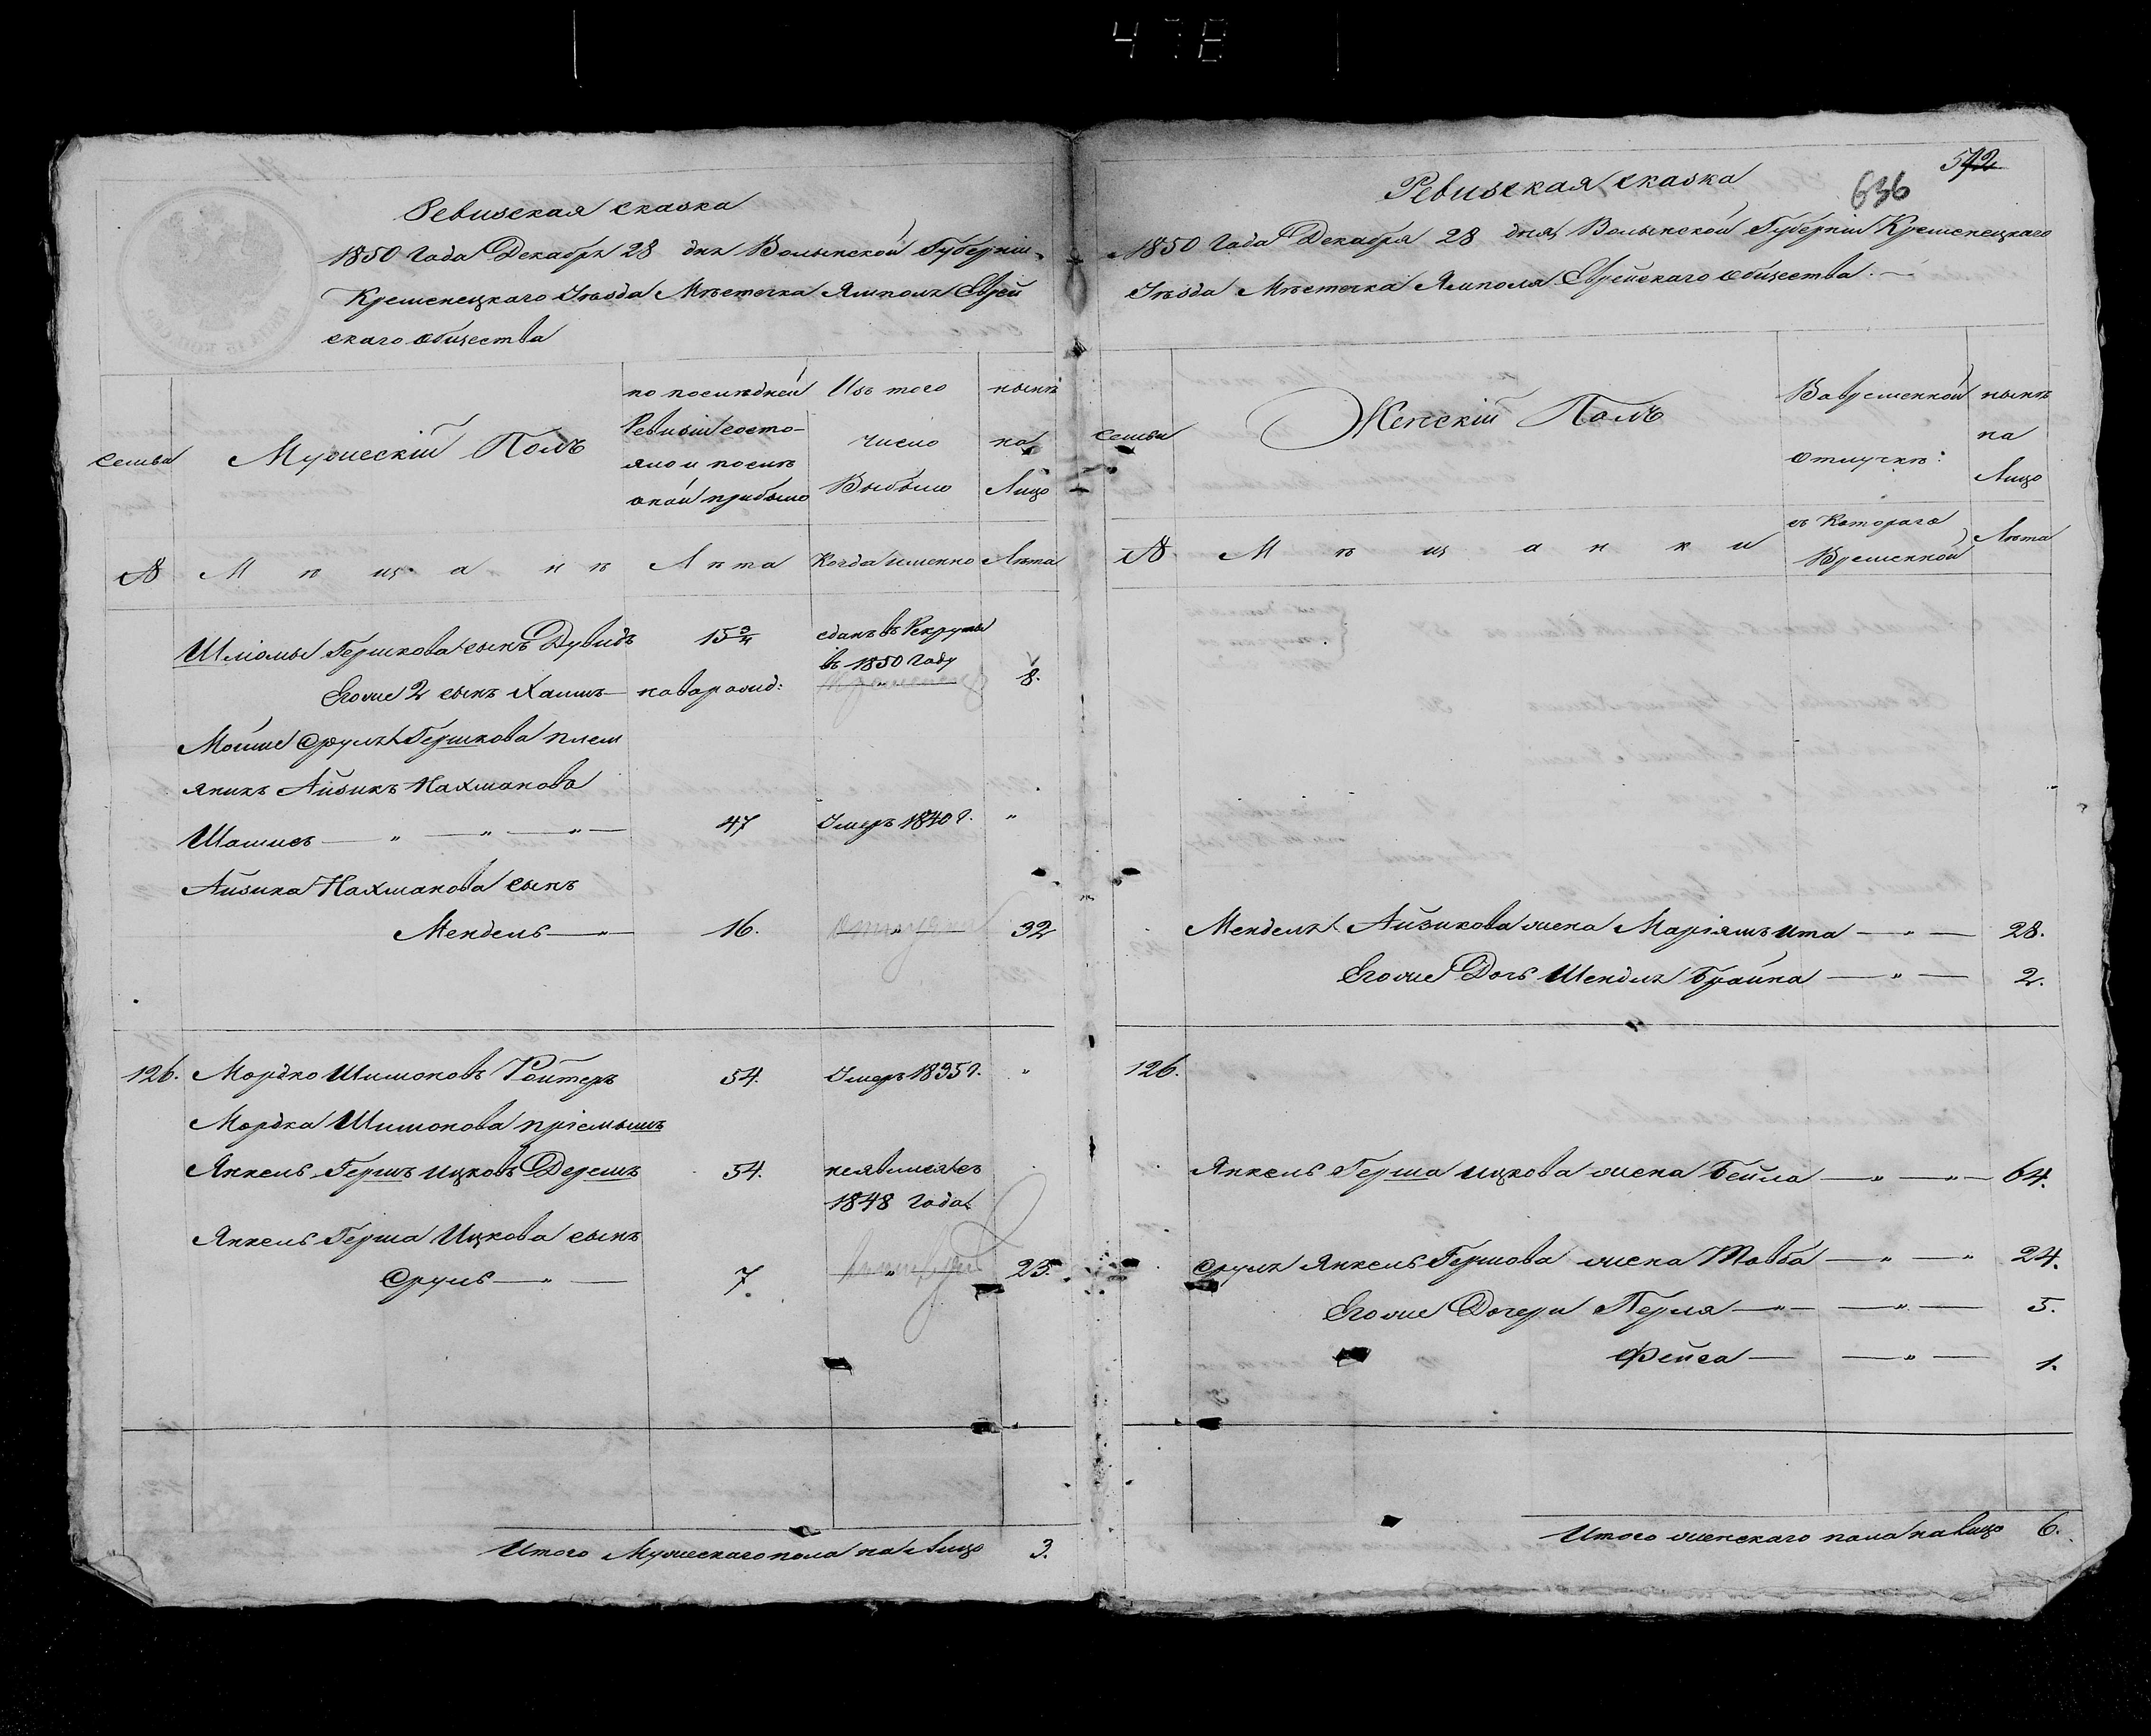 478
Ревизская сказка
1850 Года Декабря 28 дня Волынской Губерніи
Кременецкаго Уѣзда Мѣстечка Ямполя Еврей
скаго общества
Семьи
Мужескій Полъ
по послѣдней
Ревизіи состо-
яло и послѣ
оной прибыло
Изъ того
число
Выбыло
нынѣ
на
Лицо
№
Мѣщанѣ
Лѣта
Когда именно
Лѣта
Шліомы Гершкова сынъ Дувидъ 15 3/4 сданъ въ Рекруты
въ 1850 Году
Егоже 2 сынъ Хаимъ новорожд: — „ — 8.
Мошие Сруля Гершкова плем
яникъ Айзикъ Нахманова
Шамисъ — „ — „ — „ — 47 Умеръ 1840 г. „
Айзика Нахманова сынъ
Мендель — „ — 16. — „ — 32
126. Мордко Шимоновъ Ройтеръ 54. Умеръ 1835 г. „
Мордка Шимонова пріемышъ
Янкель Гершъ Ицковъ Дерешъ 54. неявился съ
1848 года
Янкель Герша Ицкова сынъ
Сруль — „ — 7. „ 25.
Итого Мужескаго пола на Лицо 3.
542
636
Ревизская сказка
1850 Года Декабря 28 дня Волынской Губерніи Кременецкаго
Уѣзда Мѣстечка Ямполя Еврейскаго общества. —
Семьи
Женскій Полъ
Вовременной
отлучкѣ:
нынѣ
на
Лицо
№
Мѣщанки
съ Котораго
Временной
Лѣта
Менделя Айзикова жена Маріямъ Ита — „ — 28.
Егоже Дочь Шендля Брайна — „ — 2.
126.
Янкель Герша Ицкова жена Бейла — „ — „ — 64.
Сруля Янкель Гершова жена Товба — „ — „ 24.
Егоже Дочери Перля — „ — — „ — 5.
Фейга — — „ — 1.
Итого женскаго пола на лицо 6.